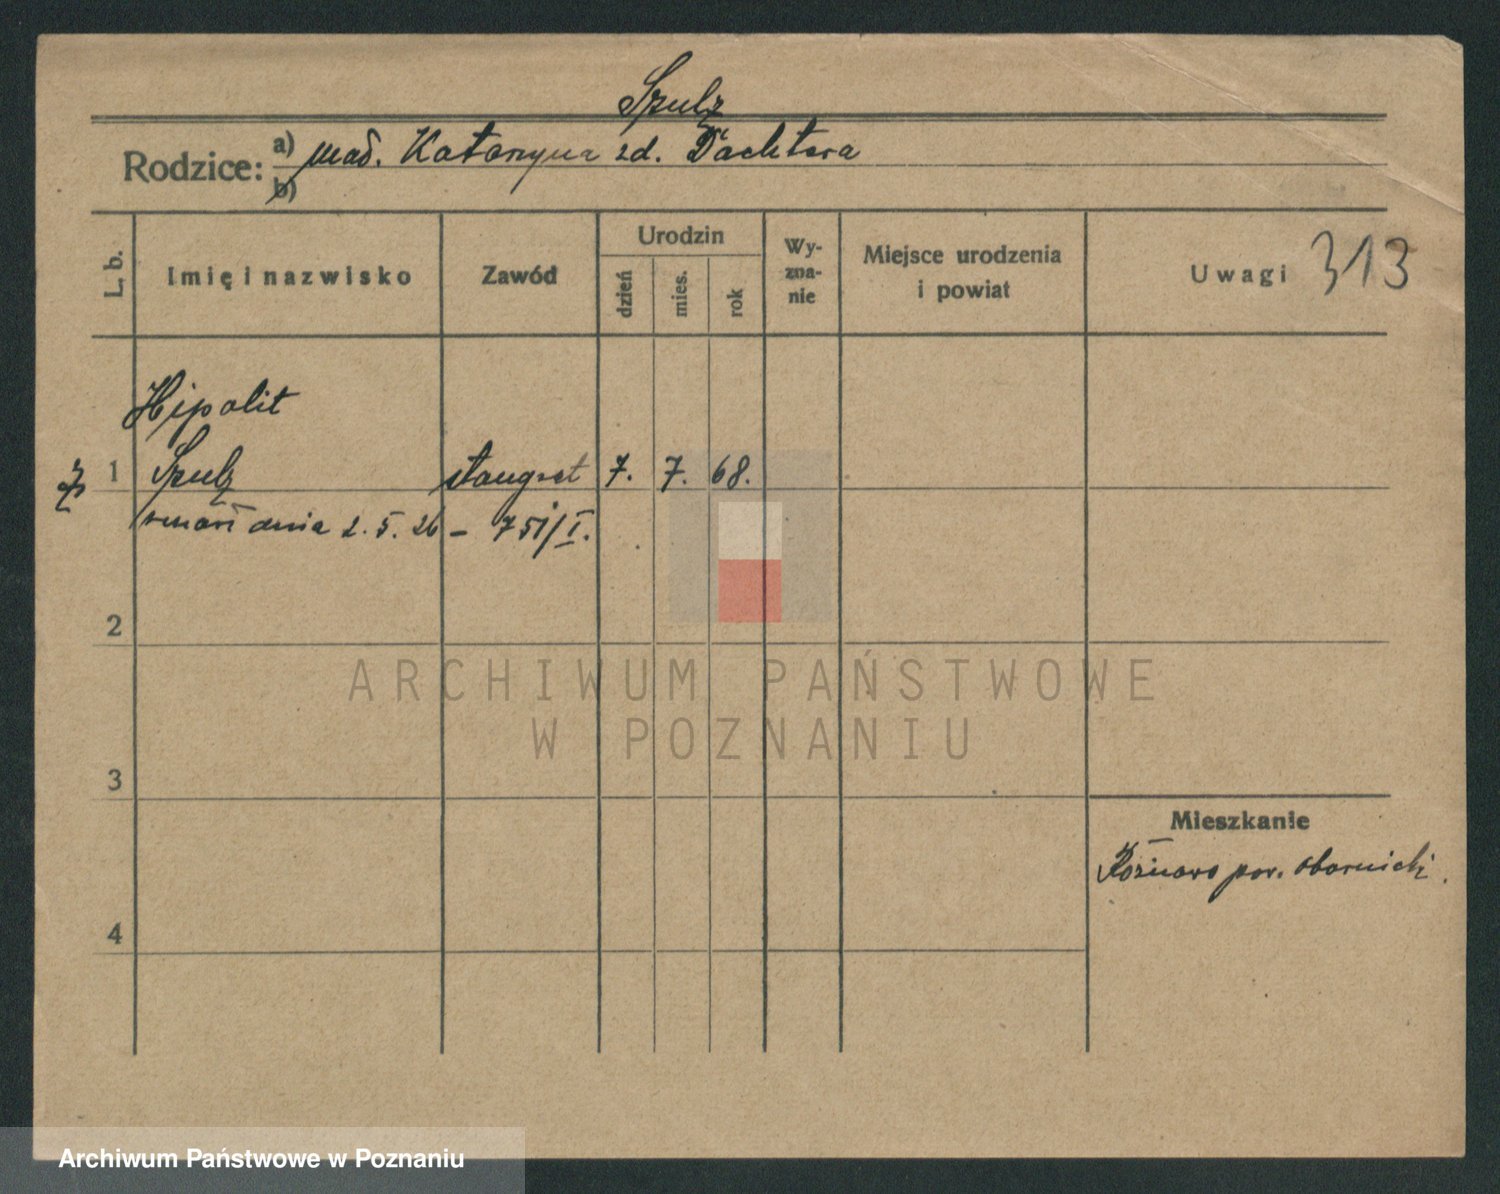 Szulz
Rodzice: a) Mał. Katarzyna zd. Dachtera
b)
L. b.
Imię i nazwisko
Zawód
Urodzin
dzień
mies.
rok
Wy-
zna-
nie
Miejsce urodzenia
i powiat
Uwagi 313
Hipolit
1 Szulz stangret 7. 7. 68.
zmarł dnia 2.5.26 – 751/I.
2
3
4
Mieszkanie
Rożnowo pow. obornicki.
ARCHIWUM PAŃSTWOWE
W POZNANIU
Archiwum Państwowe w Poznaniu